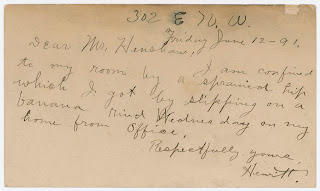 302 E 70, W.
Friday June 12-91.
Dear Mr. Henshaw,
I am confined
to my room by a sprained hip
which I got by slipping on a
banana rind Wednesday on my
home from Office.
Respectfully yours,
Hewitt